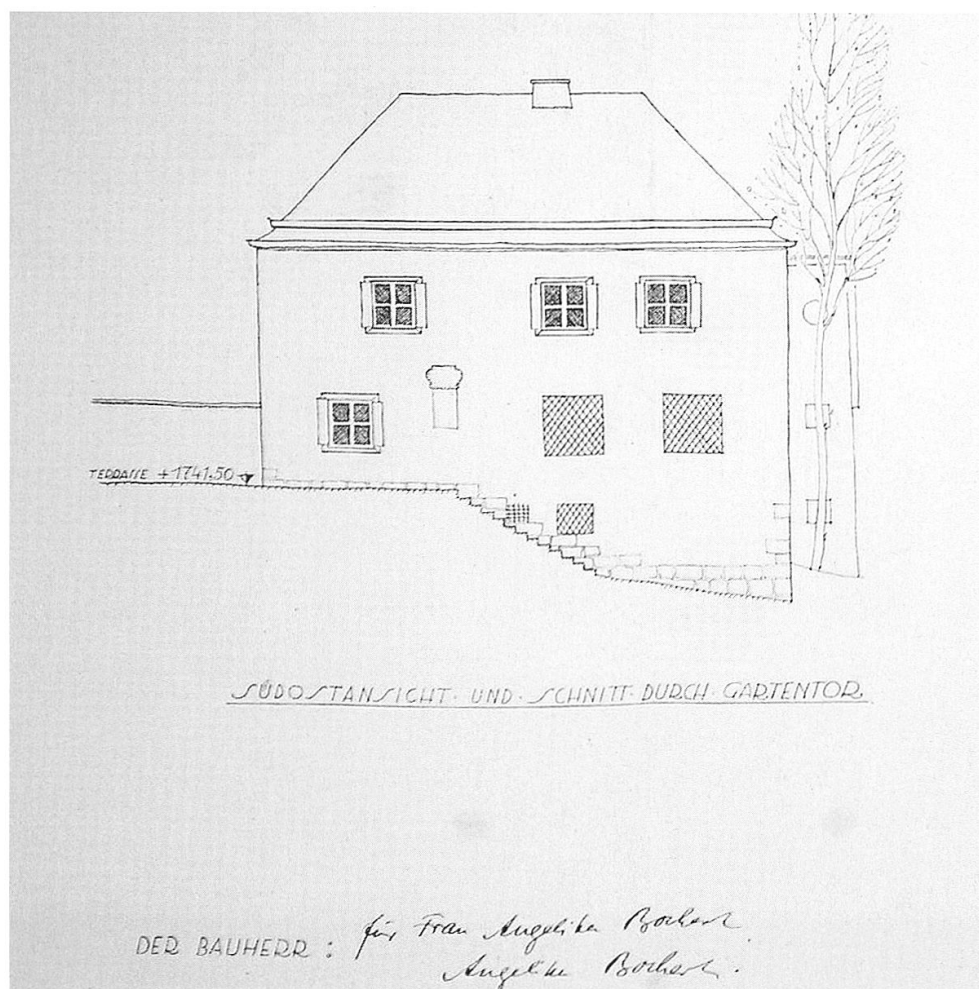 TERRASSE +1741.50
SÜDOSTANSICHT · UND · SCHNITT · DURCH · GARTENTOR
DER BAUHERR : für Frau Angelika Bochert
Angelika Bochert.